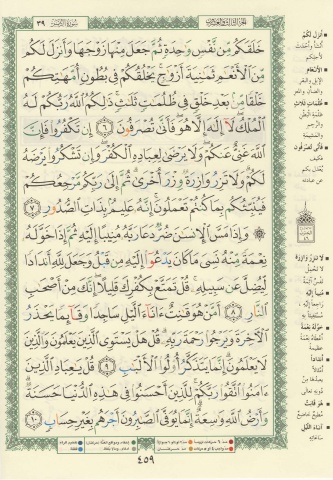 سورة الزمر ٣٩
خَلَقَكُم مِّن نَّفْسٍ وَٰحِدَةٍ ثُمَّ جَعَلَ مِنْهَا زَوْجَهَا وَأَنزَلَ لَكُم
مِّنَ ٱلْأَنْعَٰمِ ثَمَٰنِيَةَ أَزْوَٰجٍ يَخْلُقُكُمْ فِى بُطُونِ أُمَّهَٰتِكُمْ
خَلْقًا مِّنۢ بَعْدِ خَلْقٍ فِى ظُلُمَٰتٍ ثَلَٰثٍ ذَٰلِكُمُ ٱللَّهُ رَبُّكُمْ لَهُ
ٱلْمُلْكُ لَآ إِلَٰهَ إِلَّا هُوَ فَأَنَّىٰ تُصْرَفُونَ ٦ إِن تَكْفُرُوا۟ فَإِنَّ
ٱللَّهَ غَنِىٌّ عَنكُمْ وَلَا يَرْضَىٰ لِعِبَادِهِ ٱلْكُفْرَ وَإِن تَشْكُرُوا۟ يَرْضَهُ
لَكُمْ وَلَا تَزِرُ وَازِرَةٌ وِزْرَ أُخْرَىٰ ثُمَّ إِلَىٰ رَبِّكُم مَّرْجِعُكُمْ
فَيُنَبِّئُكُم بِمَا كُنتُمْ تَعْمَلُونَ إِنَّهُۥ عَلِيمٌۢ بِذَاتِ ٱلصُّدُورِ ٧
۞ وَإِذَا مَسَّ ٱلْإِنسَٰنَ ضُرٌّ دَعَا رَبَّهُۥ مُنِيبًا إِلَيْهِ ثُمَّ إِذَا خَوَّلَهُۥ
نِعْمَةً مِّنْهُ نَسِىَ مَا كَانَ يَدْعُوٓا۟ إِلَيْهِ مِن قَبْلُ وَجَعَلَ لِلَّهِ أَندَادًا
لِّيُضِلَّ عَن سَبِيلِهِۦ قُلْ تَمَتَّعْ بِكُفْرِكَ قَلِيلًا إِنَّكَ مِنْ أَصْحَٰبِ
ٱلنَّارِ ٨ أَمَّنْ هُوَ قَٰنِتٌ ءَانَآءَ ٱلَّيْلِ سَاجِدًا وَقَآئِمًا يَحْذَرُ
ٱلْءَاخِرَةَ وَيَرْجُوا۟ رَحْمَةَ رَبِّهِۦ قُلْ هَلْ يَسْتَوِى ٱلَّذِينَ يَعْلَمُونَ وَٱلَّذِينَ
لَا يَعْلَمُونَ إِنَّمَا يَتَذَكَّرُ أُو۟لُوا۟ ٱلْأَلْبَٰبِ ٩ قُلْ يَٰعِبَادِ ٱلَّذِينَ
ءَامَنُوا۟ ٱتَّقُوا۟ رَبَّكُمْ لِلَّذِينَ أَحْسَنُوا۟ فِى هَٰذِهِ ٱلدُّنْيَا حَسَنَةٌ
وَأَرْضُ ٱللَّهِ وَٰسِعَةٌ إِنَّمَا يُوَفَّى ٱلصَّٰبِرُونَ أَجْرَهُم بِغَيْرِ حِسَابٍ ١٠
٤٥٩
أنزل لكم
الأنعام
ظلمات ثلاث
فأنى تصرفون
لا تزر وازرة
منيبا إليه
خوله نعمة
أندادا
هو قانت
آناء الليل
ساعاته